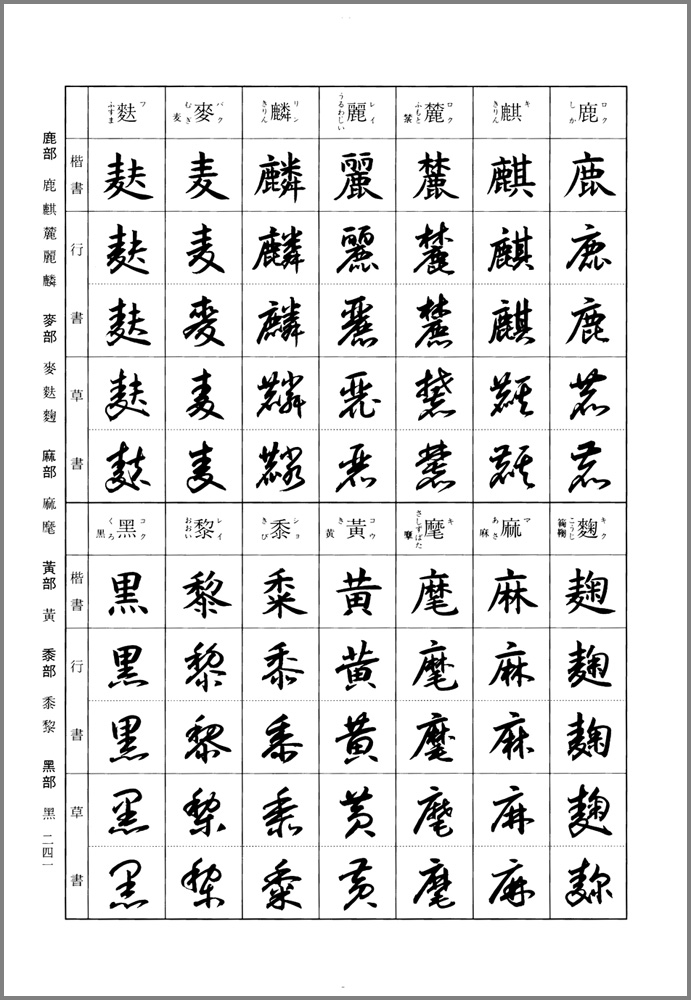 鹿 ロク しか
麒 キ きりん
麓 ロク ふもと 禁
麗 レイ うるわしい
麟 リン きりん
麥 バク むぎ 麦
麩 フ ふすま
楷書 鹿 麒 麓 麗 麟 麦 麩
行書 鹿 麒 麓 麗 麟 麦 麩
鹿 麒 麓 麗 麟 麥 麩
草書 鹿 麒 麓 麗 麟 麦 麩
鹿 麒 麓 麗 麟 麦 麩
麴 キク こうじ
麻 マ あさ 麻
麾 キ さしずばた
黃 コウ き 黄
黍 ショ きび
黎 レイ おおい
黑 コク くろ 黒
楷書 麹 麻 麾 黄 黍 黎 黒
行書 麹 麻 麾 黄 黍 黎 黒
麹 麻 麾 黄 黍 黎 黒
草書 麹 麻 麾 黄 黍 黎 黒
麹 麻 麾 黄 黍 黎 黒
鹿部 鹿 麒 麓 麗 麟 麥部 麥 麩 麴 麻部 麻 麾 黃部 黃 黍部 黍 黎 黑部 黑 二四一